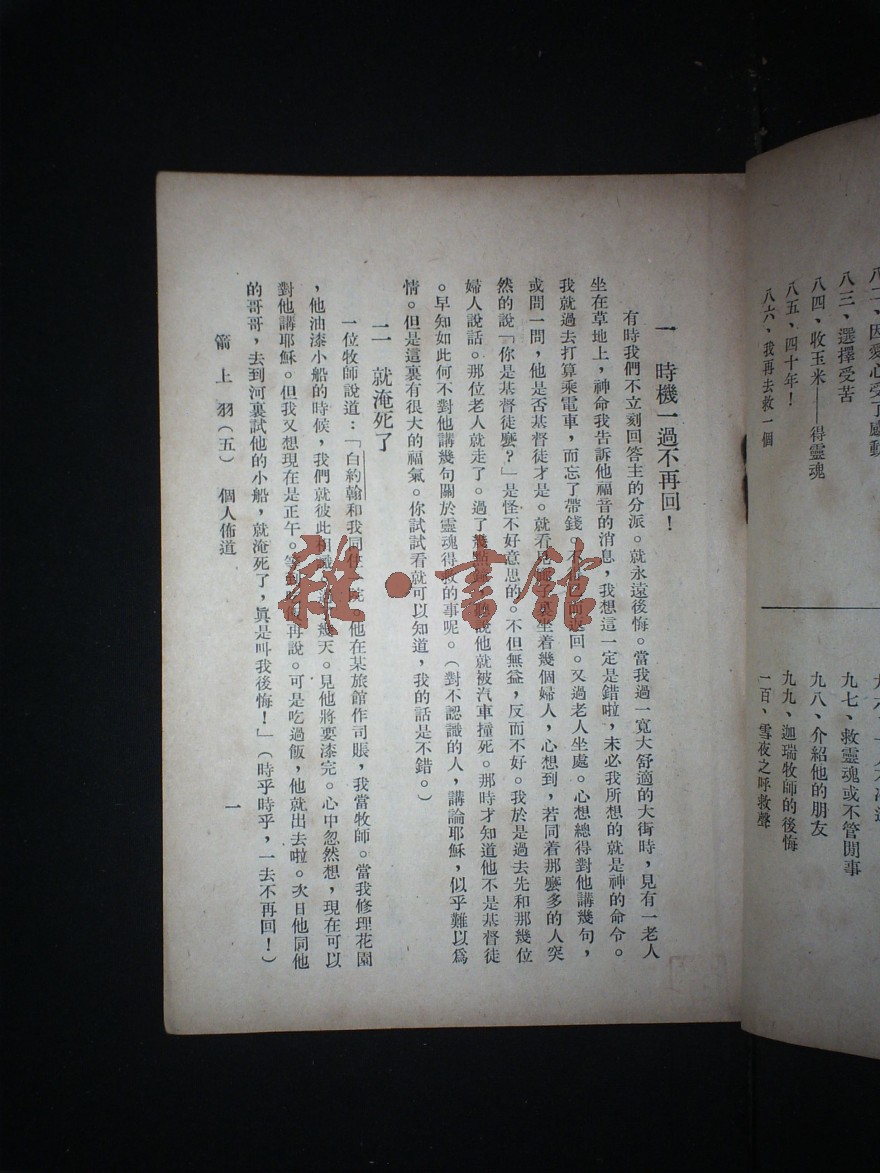 八二、因愛心受了感動
八三、選擇受苦
八四、收玉米——得靈魂
八五、四十年！
八六、我再去救一個
九七、救靈魂或不管閒事
九八、介紹他的朋友
九九、迦瑞牧師的後悔
一百、雪夜之呼救聲
一 時機一過不再回！
有時我們不立刻回答主的分派。就永遠後悔。當我過一寬大舒適的大街時，見有一老人
坐在草地上，神命我告訴他福音的消息，我想這一定是錯啦，未必我所想的就是神的命令。
我就過去打算乘電車，而忘了帶錢。不得已而返回。又過老人坐處。心想總得對他講幾句，
或問一問，他是否基督徒才是。就看見亭子裏坐着幾個婦人，心想到，若同着那麼多的人突
然的說「你是基督徒麼？」是怪不好意思的。不但無益，反而不好。我於是過去先和那幾位
婦人說話。那位老人就走了。過了幾點鐘，聽說他就被汽車撞死。那時才知道他不是基督徒
。早知如此何不對他講幾句關於靈魂得救的事呢。（對不認識的人，講論耶穌，似乎難以爲
情。但是這裏有很大的福氣。你試試看就可以知道，我的話是不錯。）
二 就淹死了
一位牧師說道：「白約翰和我同住一院。他在某旅館作司賬，我當牧師。當我修理花園
，他油漆小船的時候，我們就彼此相識。過了幾天。見他將要漆完。心中忽然想，現在可以
對他講耶穌。但我又想現在是正午。等到吃飯再說。可是吃過飯，他就出去啦。次日他同他
的哥哥，去到河裏試他的小船，就淹死了，眞是叫我後悔！」（時乎時乎，一去不再回！）
箭上羽（五） 個人佈道
一
雜·書館